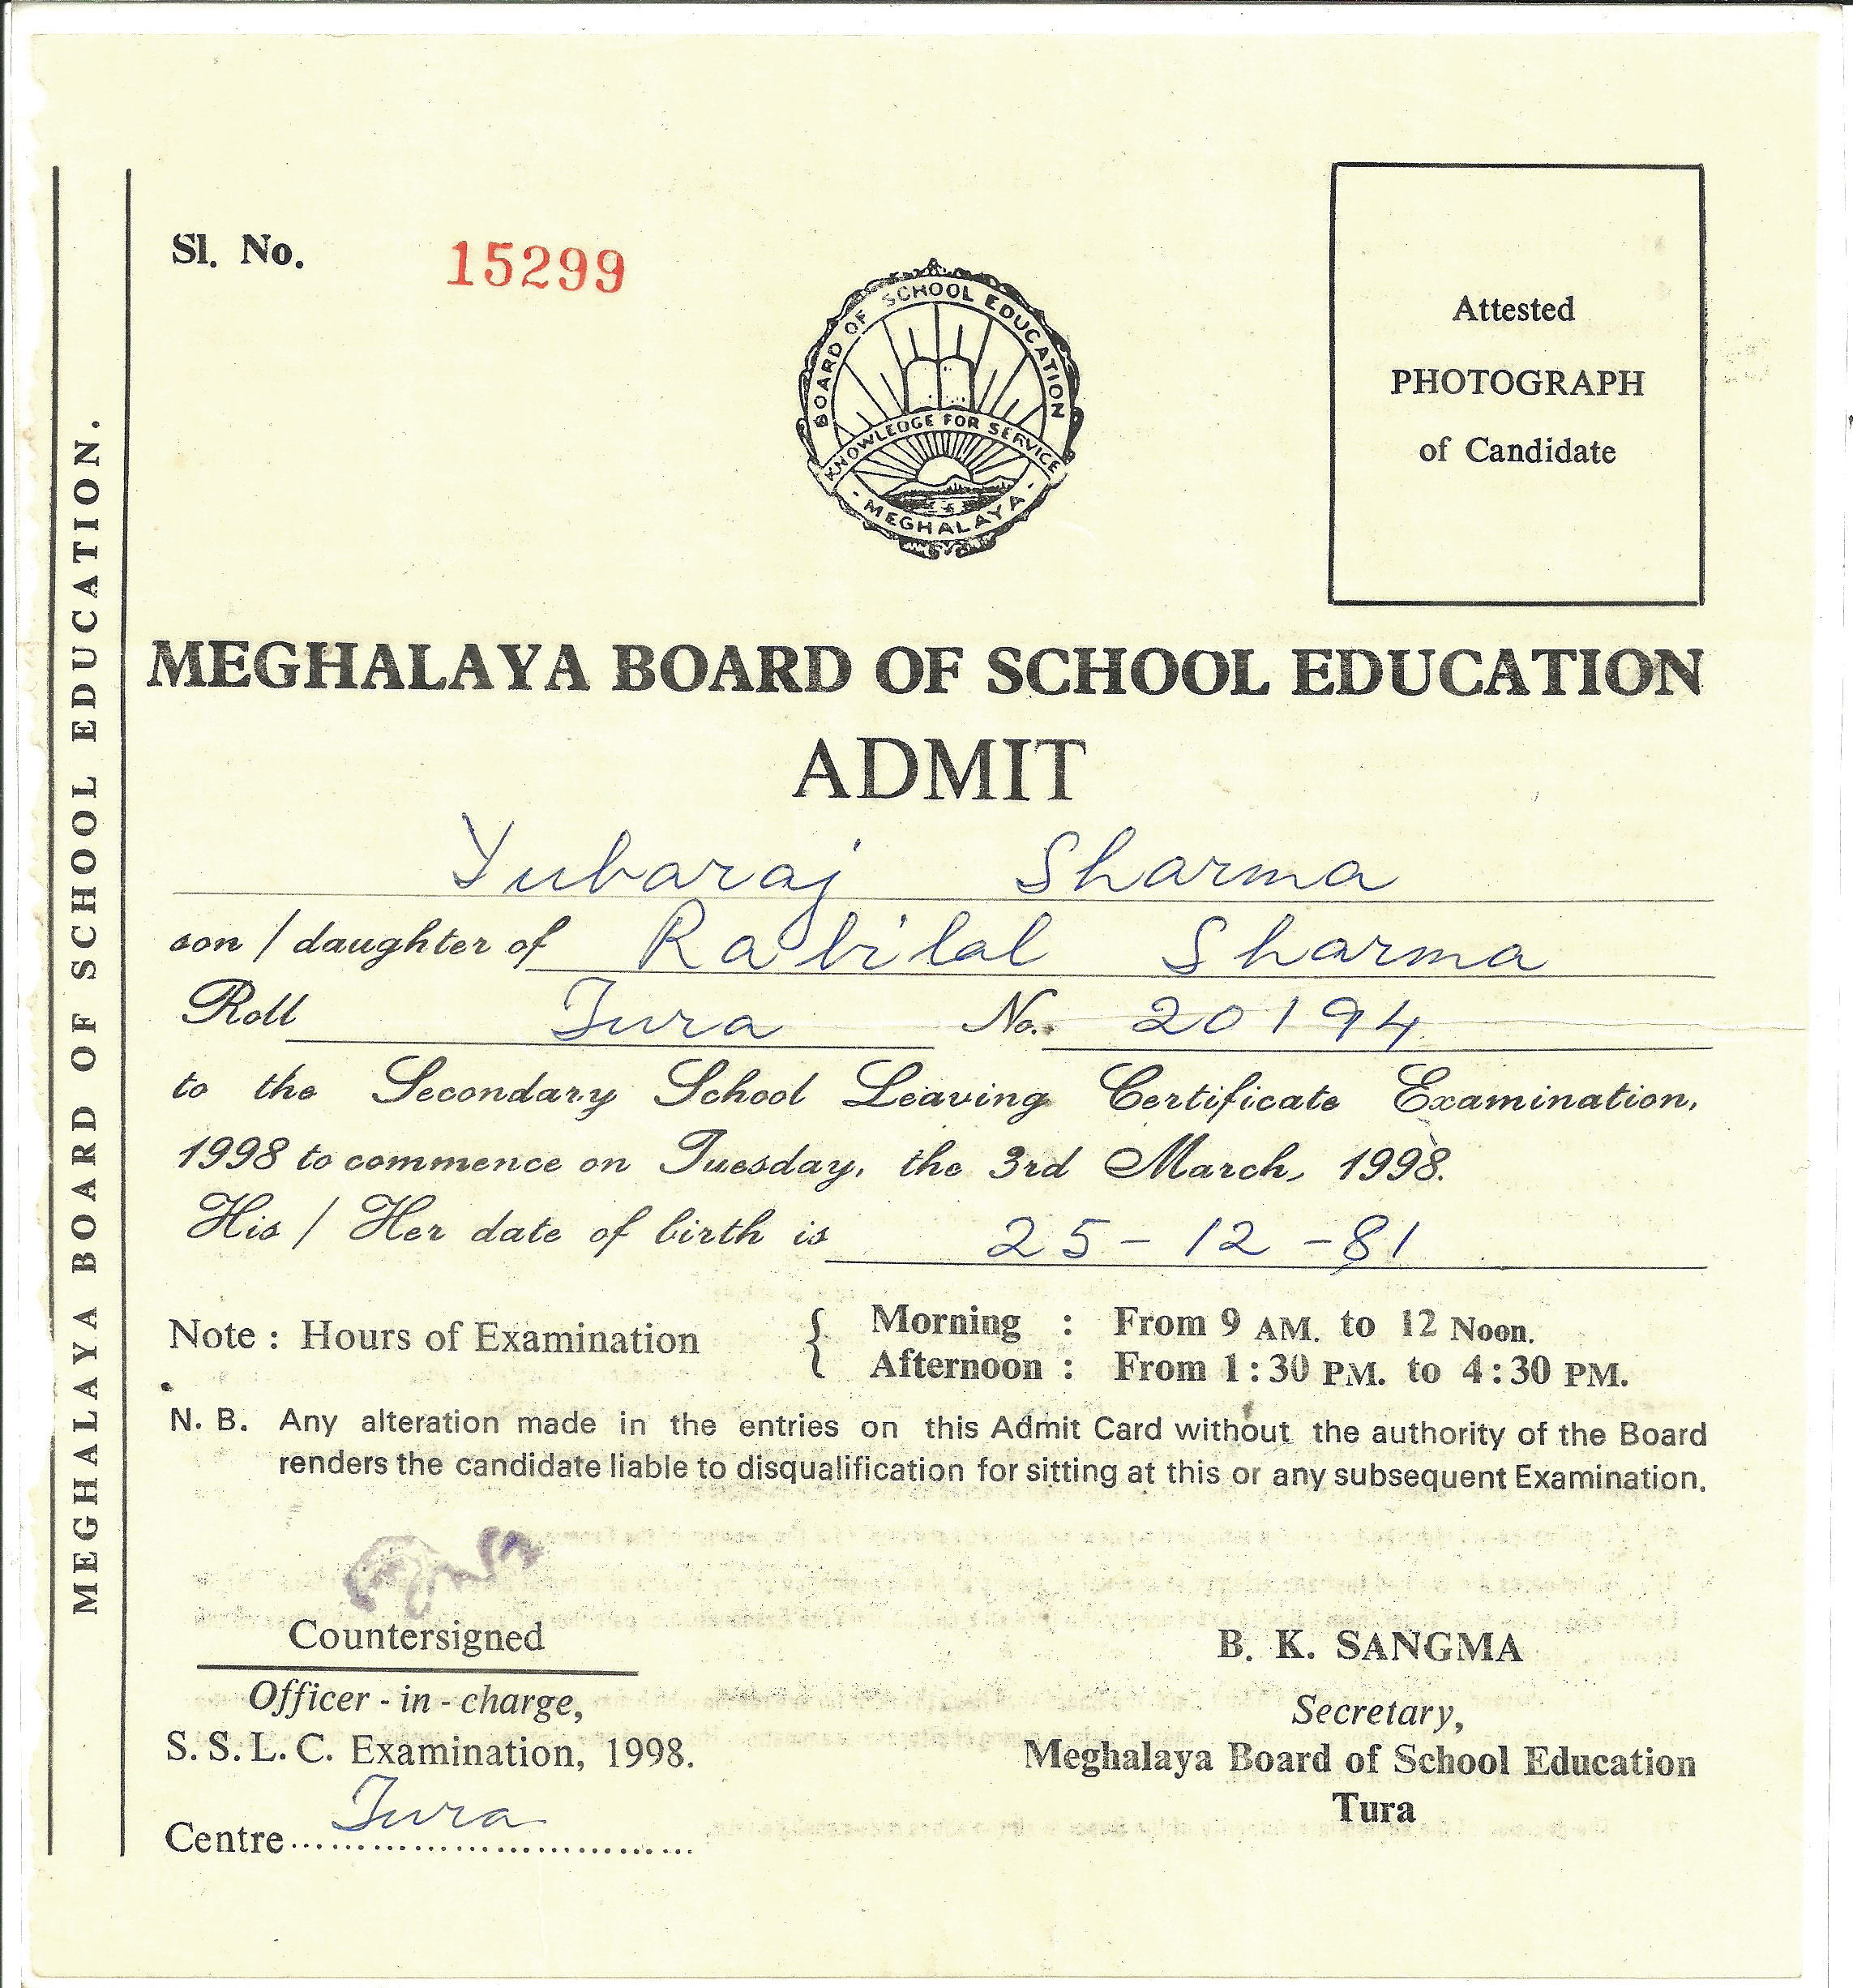 Sl. No. 15299
BOARD OF SCHOOL EDUCATION
KNOWLEDGE FOR SERVICE
- MEGHALAYA -
Attested
PHOTOGRAPH
of Candidate
MEGHALAYA BOARD OF SCHOOL EDUCATION.
MEGHALAYA BOARD OF SCHOOL EDUCATION
ADMIT
Yubaraj Sharma
son / daughter of Rabilal Sharma
Roll Tura No. 20194
to the Secondary School Leaving Certificate Examination,
1998 to commence on Tuesday, the 3rd March, 1998.
His / Her date of birth is 25-12-81
Note : Hours of Examination { Morning : From 9 AM. to 12 Noon.
Afternoon : From 1:30 PM. to 4:30 PM.
N. B. Any alteration made in the entries on this Admit Card without the authority of the Board
renders the candidate liable to disqualification for sitting at this or any subsequent Examination.
Countersigned
Officer - in - charge,
S. S. L. C. Examination, 1998.
Centre Tura
B. K. SANGMA
Secretary,
Meghalaya Board of School Education
Tura